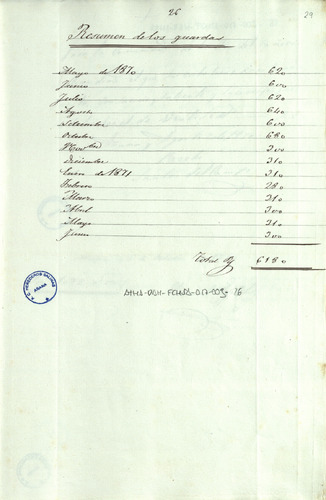 26
29
Resumen de los guardas
Mayo de 1870 620
Junio 600
Julio 620
Agosto 640
Setiembre 600
Octubre 680
Novbre 300
Diciembre 310
Enero de 1871 310
Febrero 280
Marzo 310
Abril 300
Mayo 310
Junio 300
Total 6180